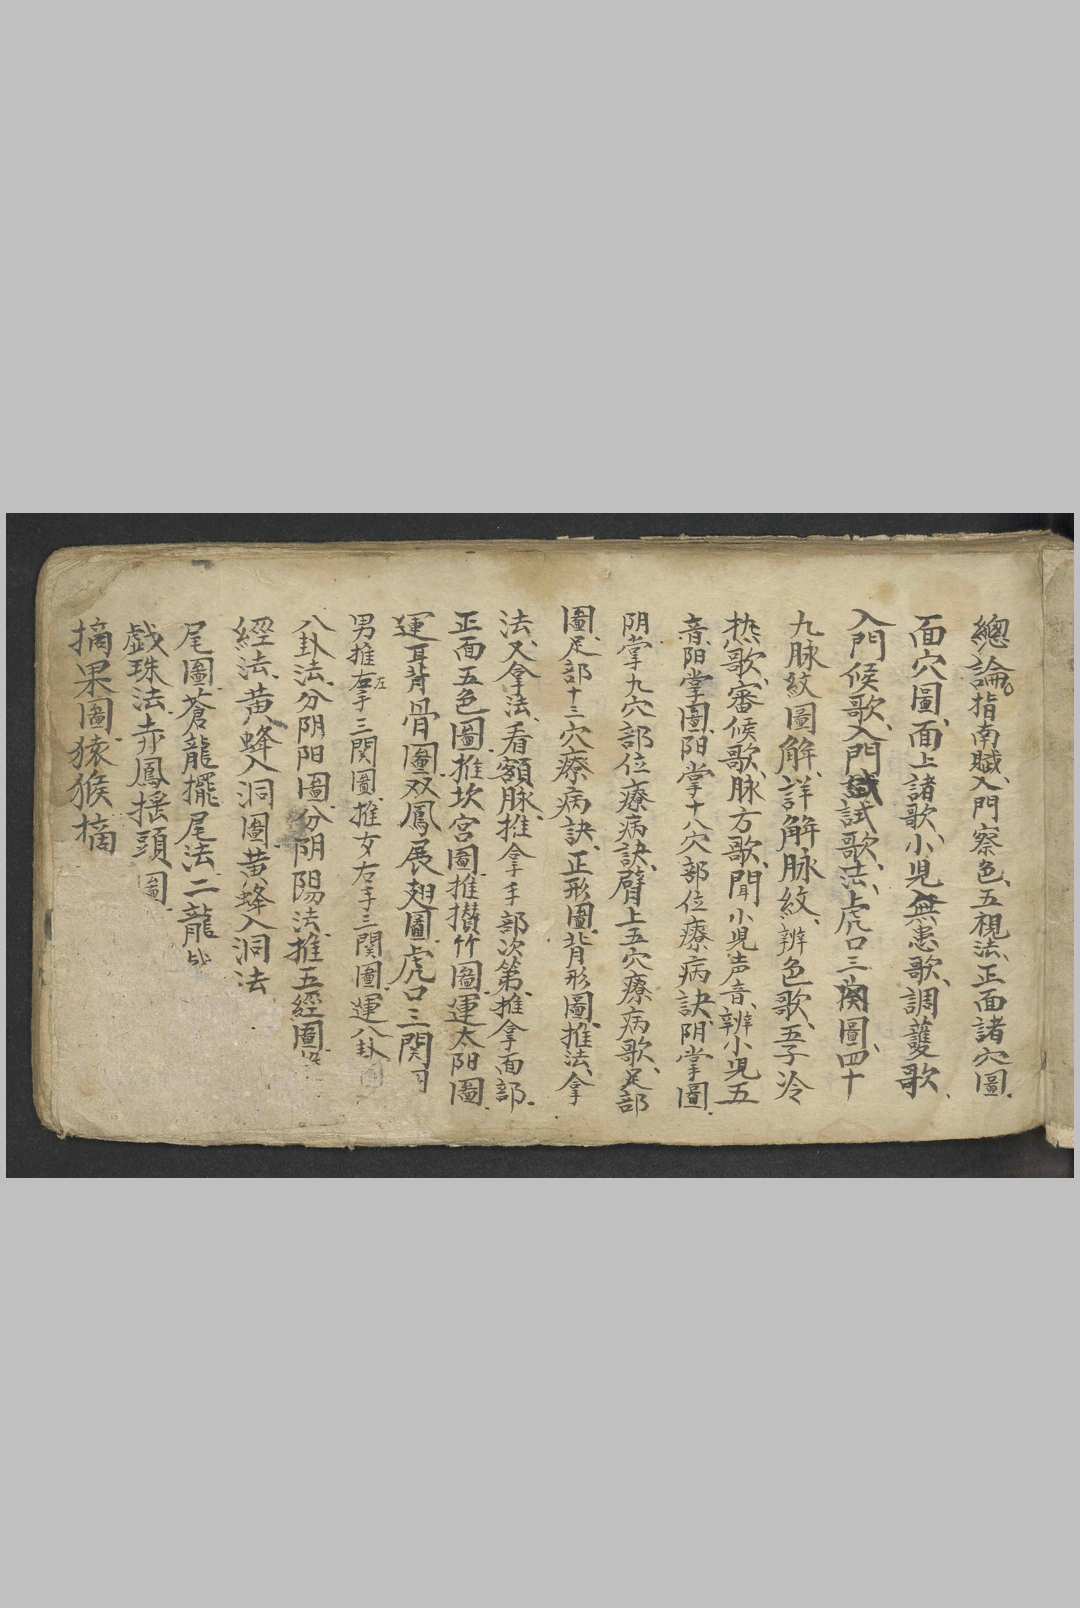 總論。指南賦、入門察色、五視法、正面諸穴圖、
面穴圖、面上諸歌、小児無患歌、調護歌、
入門候歌、入門試歌、法上虎口三関圖、四十
九脉紋圖解、詳解脉紋、辨色歌、五子冷
热歌、審候歌、脉方歌、聞小児声音、辨小児五
音、阳掌圖、阳掌十八穴部位療病訣、阴掌圖、
阴掌九穴部位療病訣、臂上五穴療病歌、足部
圖、足部十三穴療病訣、正形圖、背形圖、推法、拿
法、又拿法、看額脉、推拿手部次第、推拿面部、
正面五色圖、推坎宮圖、推攅竹圖、運太阳圖、
運耳背骨圖、双鳳展翅圖、虎口三関
男推左手三関圖、推女右手三関圖、運八卦
八卦法、分阴阳圖、分阴陽法、推五經圖、
經法、黄蜂入洞圖、黄蜂入洞法
尾圖、蒼龍擺尾法、二龍
戯珠法、赤鳳揺頭圖、
摘果圖、猿猴摘